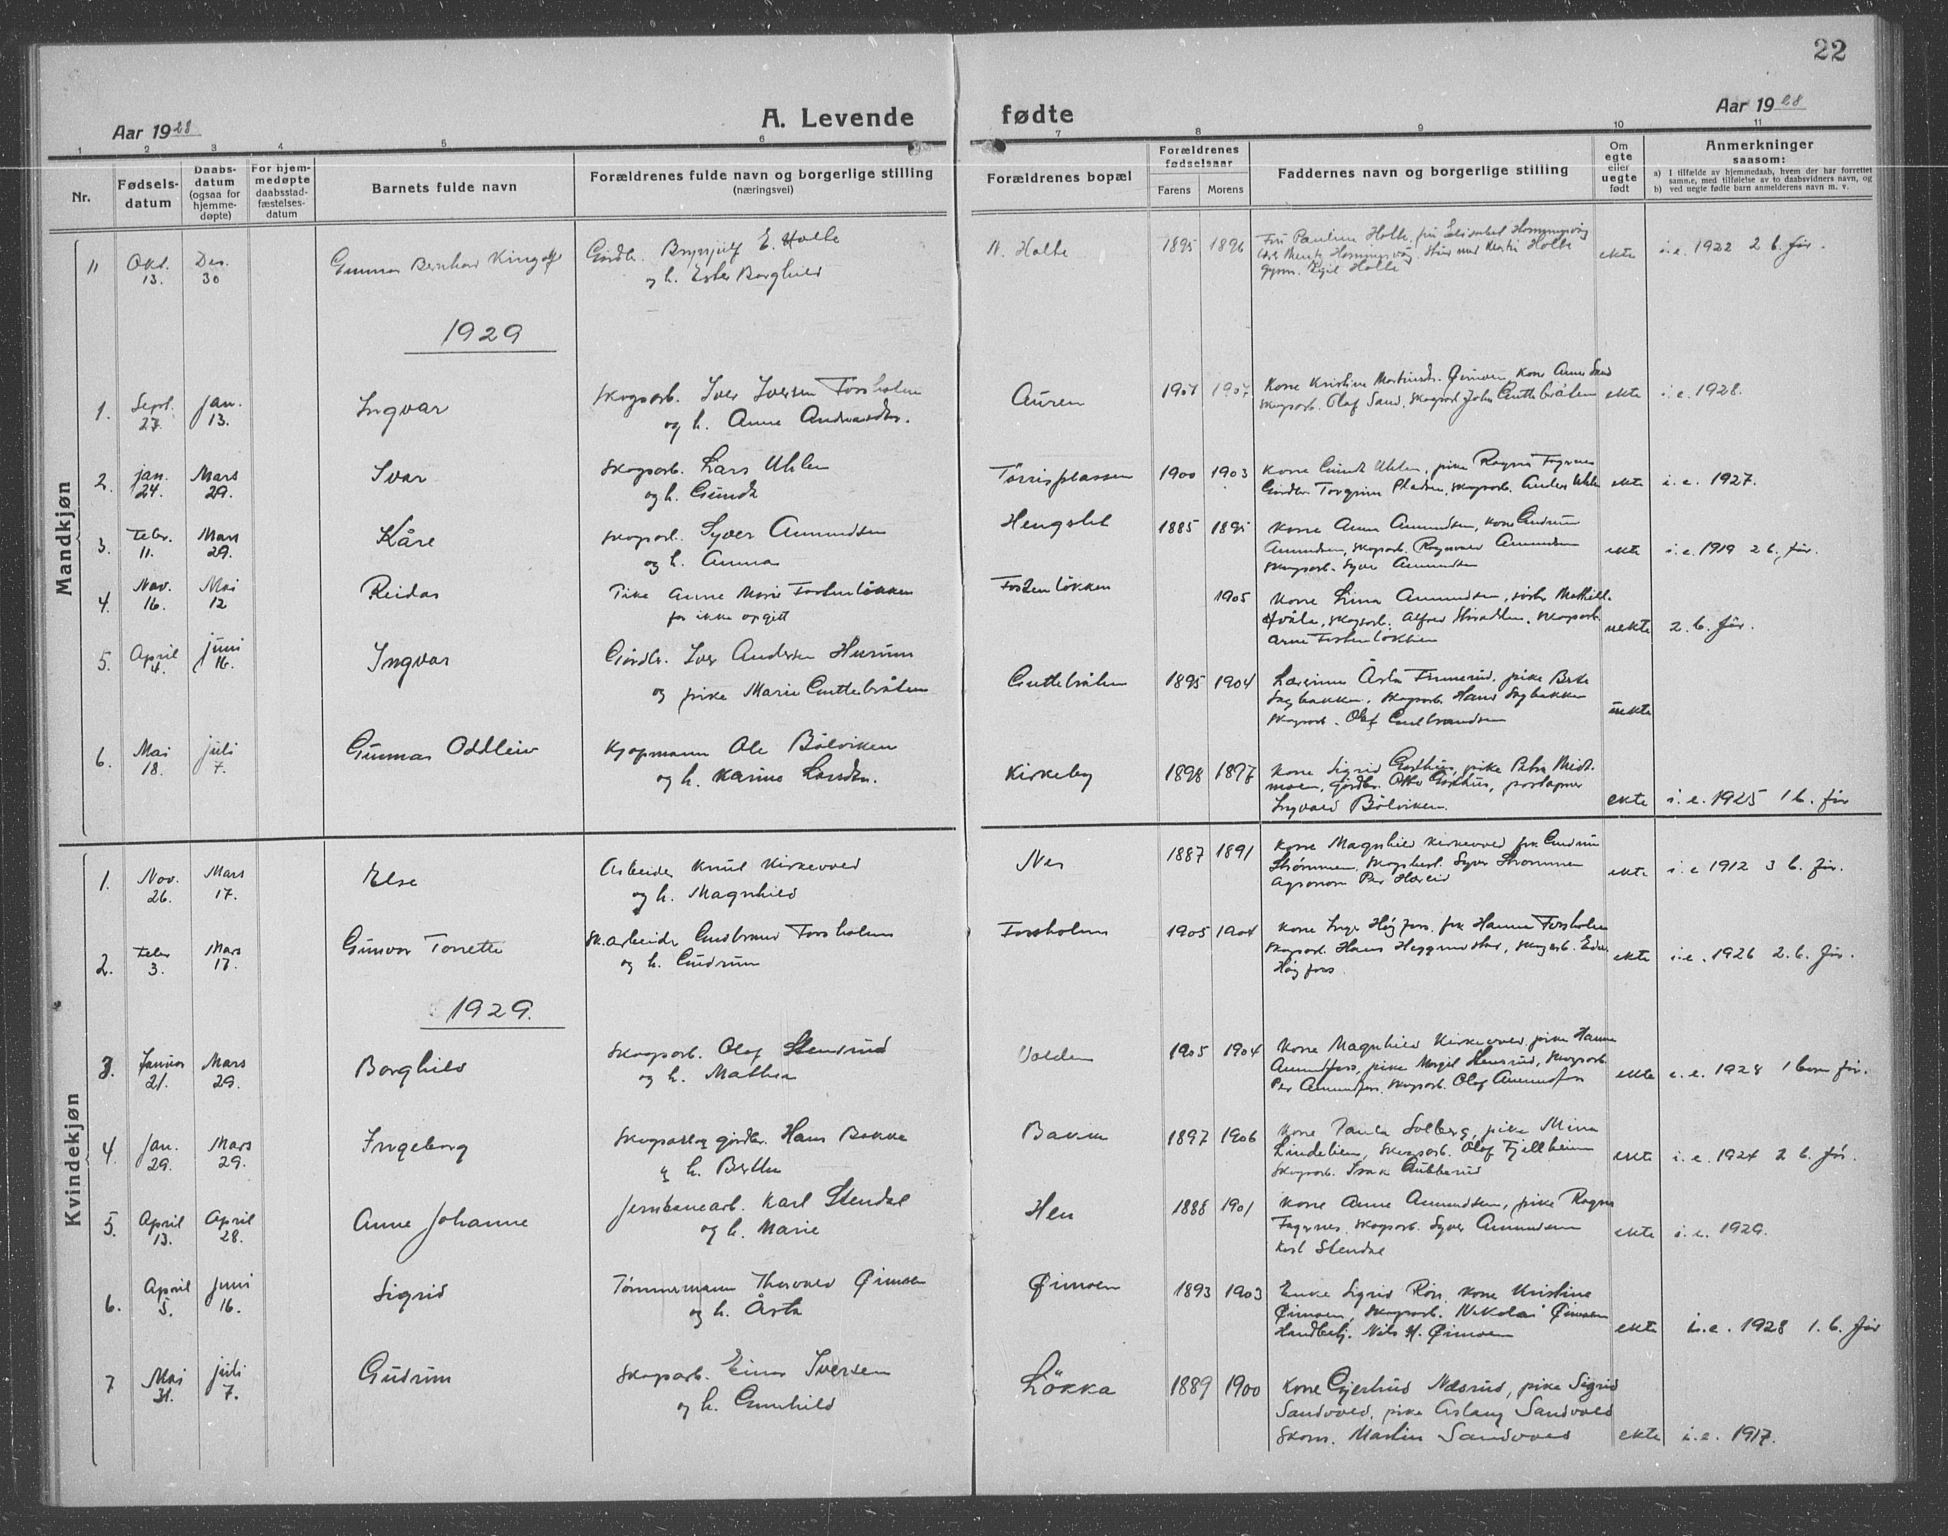 22
Aar 1928
A. Levende fødte
Aar 1928
1 2 3 4 5 6 7 8 9 10 11
Nr.
Fødsels-
datum
Daabs-
datum
(ogsaa for
hjemme-
døpte)
For hjem-
medøpte
daabsstad-
fæstelses-
datum
Barnets fulde navn
Forældrenes fulde navn og borgerlige stilling
(næringsvei)
Forældrenes bopæl
Forældrenes
fødselsaar
Farens Morens
Faddernes navn og borgerlige stilling
Om
egte
eller
uegte
født
Anmerkninger
saasom:
a) I tilfælde av hjemmedaab, hvem der har forrettet
samme, med tilføielse av to daabsvidners navn, og
b) ved uegte fødte barn anmelderens navn m. v.
Mandkjøn
11 Okt. 13. Des. 30 Gunnar Bernhard Gårdbr. Brynjulf E. Holte
og h. Ester Borghild
N. Holte 1895 1896 Fru Pauline Holte, fru Elisabet
Holte
gymn. Egil Holte
ekte i. e. 1922 2 b. før.
1929
1. Sept. 27. Jan. 13. Ingvar Skogsarb. Iver Iversen Forsholm
og h. Anne Andreasdtr.
Auren 1907 1907 Kone Kristine Martinsdr. Øimoen, Kone Anne Sand
skogsarb. Olaf Sand, skogsarb John Guttebråten ekte i. e. 1928.
2. Jan. 24. Mars 29. Ivar Skogsarb. Lars Uhlen
og h. Gunda
Tørrisplassen 1900 1903 Kone Gunda Uhlen, pike Ragna Fagernes
Gårdbr Torgrim Pladsen, skogsarb. Anders Uhlen ekte i. e. 1927.
3. Febr. 11. Mars 29. Kåre Skogsarb. Syver Amundsen
og h. Anna
Hengslet 1885 1895 Kone Anna Amundsen, kone Gudrun
Amundsen, skogsarb. Ragnvald Amundsen
skogsarb. Syver Amundsen
ekte i. e. 1919 2 b. før.
4. Nov. 16. Mai 12 Reidar Pike Anne Marie Fosterløkken
far ikke opgitt
Fosterløkken 1905 Kone Lina Amundsen, Mathilde
skogsarb. Alfred skogsarb.
Arne Fosterløkken
uekte 2. b. før.
5. April 4. Juni 16. Ingvar Gårdbr. Iver Andersen Hurum
og pike Marie Guttebråten
Guttebråten 1895 1904 Lærerinne Åsta pike Berte
skogsarb. Hans
skogsarb. Olaf Gulbrandsen
uekte
6. Mai 18. Juli 7. Gunnar Oddleiv Kjøpmann Ole Bølviken
og h. Karine Larsdtr.
Kirkeby 1898 1897 Kone Sigrid pike Petra Midt-
moen, gårdbr. Otto
Ingvald Bølviken.
ekte i. e. 1925 1 b. før
Kvindekjøn
1. Nov. 26. Mars 17. Else Arbeider Knut Kirkevold
og h. Magnhild
Nes 1887 1891 Kone Magnhild Kirkevold frk Gudrun
Strømmen, Skogbest. Syver Strømmen
Agronom Per
ekte i. e 1912 3 b. før.
2. Febr 3. Mars 17. Gunvor Torrette Sk.arbeider Gudbrand Forsholm
og h. Gudrun
Forsholm 1905 1904 Kone Inga Høgfors, frk Hanna Forsholm
Skogsarb. Hans skogarb. Edv.
Høgfors.
ekte i. e. 1926 2. b. før.
1929.
3. Januar 21. Mars 29. Borghild Skogsarb. Olaf Stensrud
og h. Mathea
Volden 1905 1904 Kone Magnhild Kirkevold, pike Hanna
Amundfors, pike Margit Hensrud, skogsarb
Per Amundfors, skogsarb. Olaf Amundfors
ekte i. e. 1928 1 barn før.
4 Jan. 29. Mars 29. Ingeborg Skogsarb og gårdbr. Hans Bakke
og h. Berthe
Bakke 1897 1906 Kone Paula Solberg, pike Mina
Lindelien, skogsarb. Olaf Fjellheim
skogsarb. Isak Gubberud
ekte i. e. 1924 2 b. før.
5. April 13. April 28. Anne Johanne Jernbanearb. Karl Stendal
og h. Marie
Hen 1888 1901 Kone Anne Amundsen, pike Ragna
Fagernes, skogsarb. Syver Amundsen
Karl Stendal
ekte i. e. 1929.
6. April 5. Juni 16. Sigrid Tømmermann Thorvald Øimoen
og h. Åsta
Øimoen 1893 1903 Enke Sigrid Røn, kone Kristine
Øimoen, skogsarb. Nikolai Øimoen
Handelsbetj. Nils H. Øimoen
ekte i. e. 1928 1. b. før
7 Mai 31. Juli 7. Gudrun Skogsarb. Einar Iversen
og h. Gunhild
Løkka 1889 1900 Kone Gjertrud Næsrud, pike Sigrid
Sandvold, pike Aslaug Sandvold
Skom. Martin Sandvold
ekte i. e. 1917.